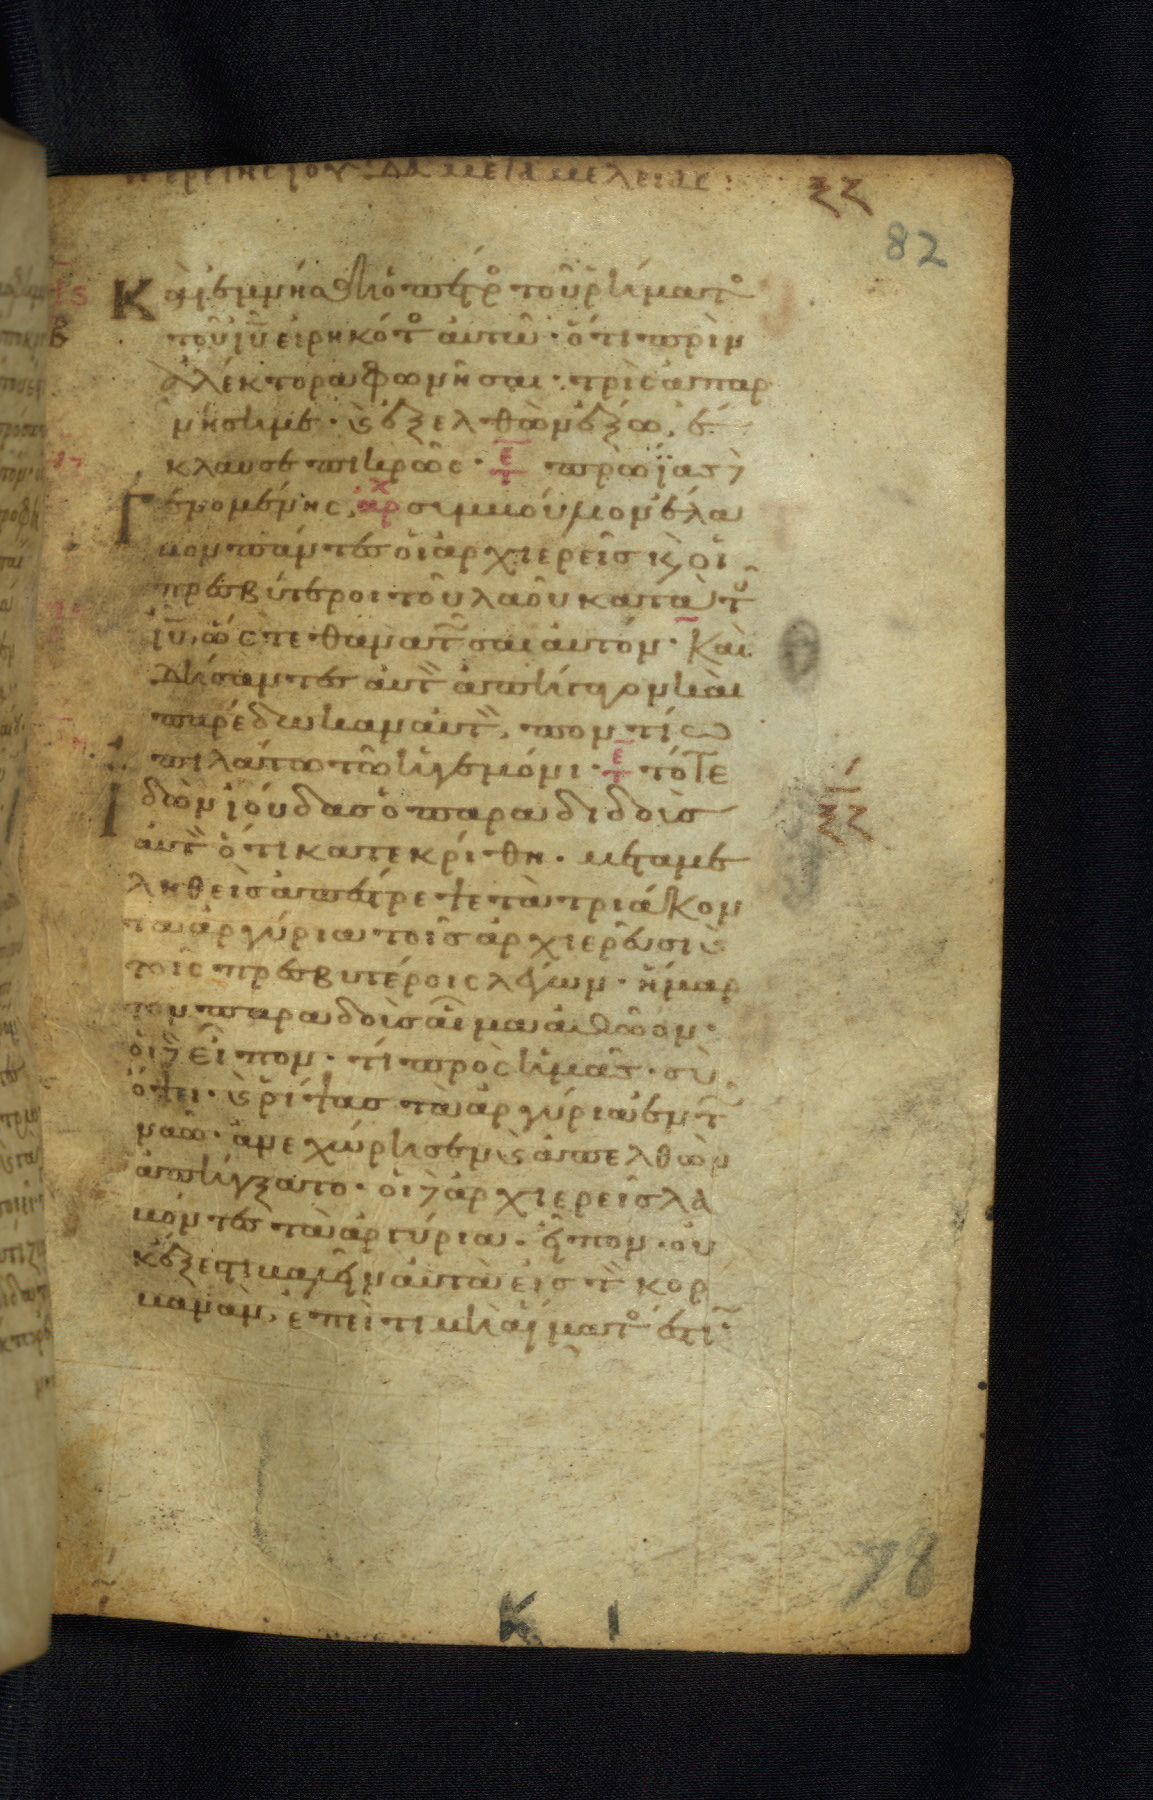 περι της ιουδα μεταμελειας :
ξζ
82
Καὶ ἐμνήσθη ὁ πέτρο τοῦ ῥήματο
τοῦ ιυ εἰρηκότο αὐτῶ · ὅτι πρὶν
ἀλέκτορα φωνῆσαι · τρὶς ἀπαρ
νήση με · ϗ ἐξελθὼν ἔξω, ἔ
κλαυσε πικρῶς · τε πρωΐας δὲ
Γενομένης, αρχ συμβούλιον ἔλα
βον πάντες οἱ ἀρχιερεῖς ϗ οἱ
πρεσβύτεροι τοῦ λαοῦ κατὰ τοῦ
ιυ, ὥστε θανατῶσαι αὐτόν · Καὶ
δήσαντες αὐτὸν ἀπήγαγον καὶ
παρέδωκαν αὐτὸν, ποντίω
πιλάτω τῶ ἡγεμόνι · τε τότε
Ἰδὼν ἰούδας ὁ παραδιδοὺς
αὐτὸν ὅτι κατεκρίθη · μεταμε
ληθεὶς ἀπέστρεψε τὰ τριάκον
τα ἀργύρια τοῖς ἀρχιερεῦσι ϗ
τοῖς πρεσβυτέροις λέγων · ἥμαρ
τον παραδοὺς αἷμα ἀθῶον ·
οἱ δὲ εἶπον · τί πρὸς ἡμᾶς · σὺ
ὄψει · ϗ ῥίψας τὰ ἀργύρια ἐν τῶ
ναῶ · ἀνεχώρησεν ϗ ἀπελθὼν
ἀπήγξατο · οἱ δὲ ἀρχιερεῖς λα
βόντες τὰ ἀργύρια · εἶπον · οὐ
κ ἔξεστι βαλεῖν αὐτὰ εἰς τὸν κορ
βανᾶν, ἐπεὶ τιμὴ αἵματο ἐστι ·
ξζ
78
Κ Ι